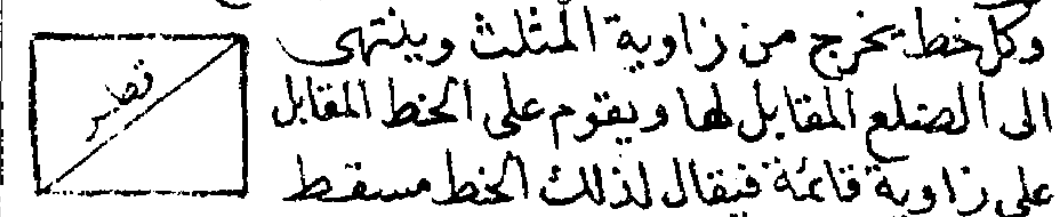 وكل خط يخرج من زاوية المثلث وينتهى
الى الضلع المقابل لها ويقوم على الخط المقابل
على زاوية قائمة فيقال لذلك الخط مسقط
قطر